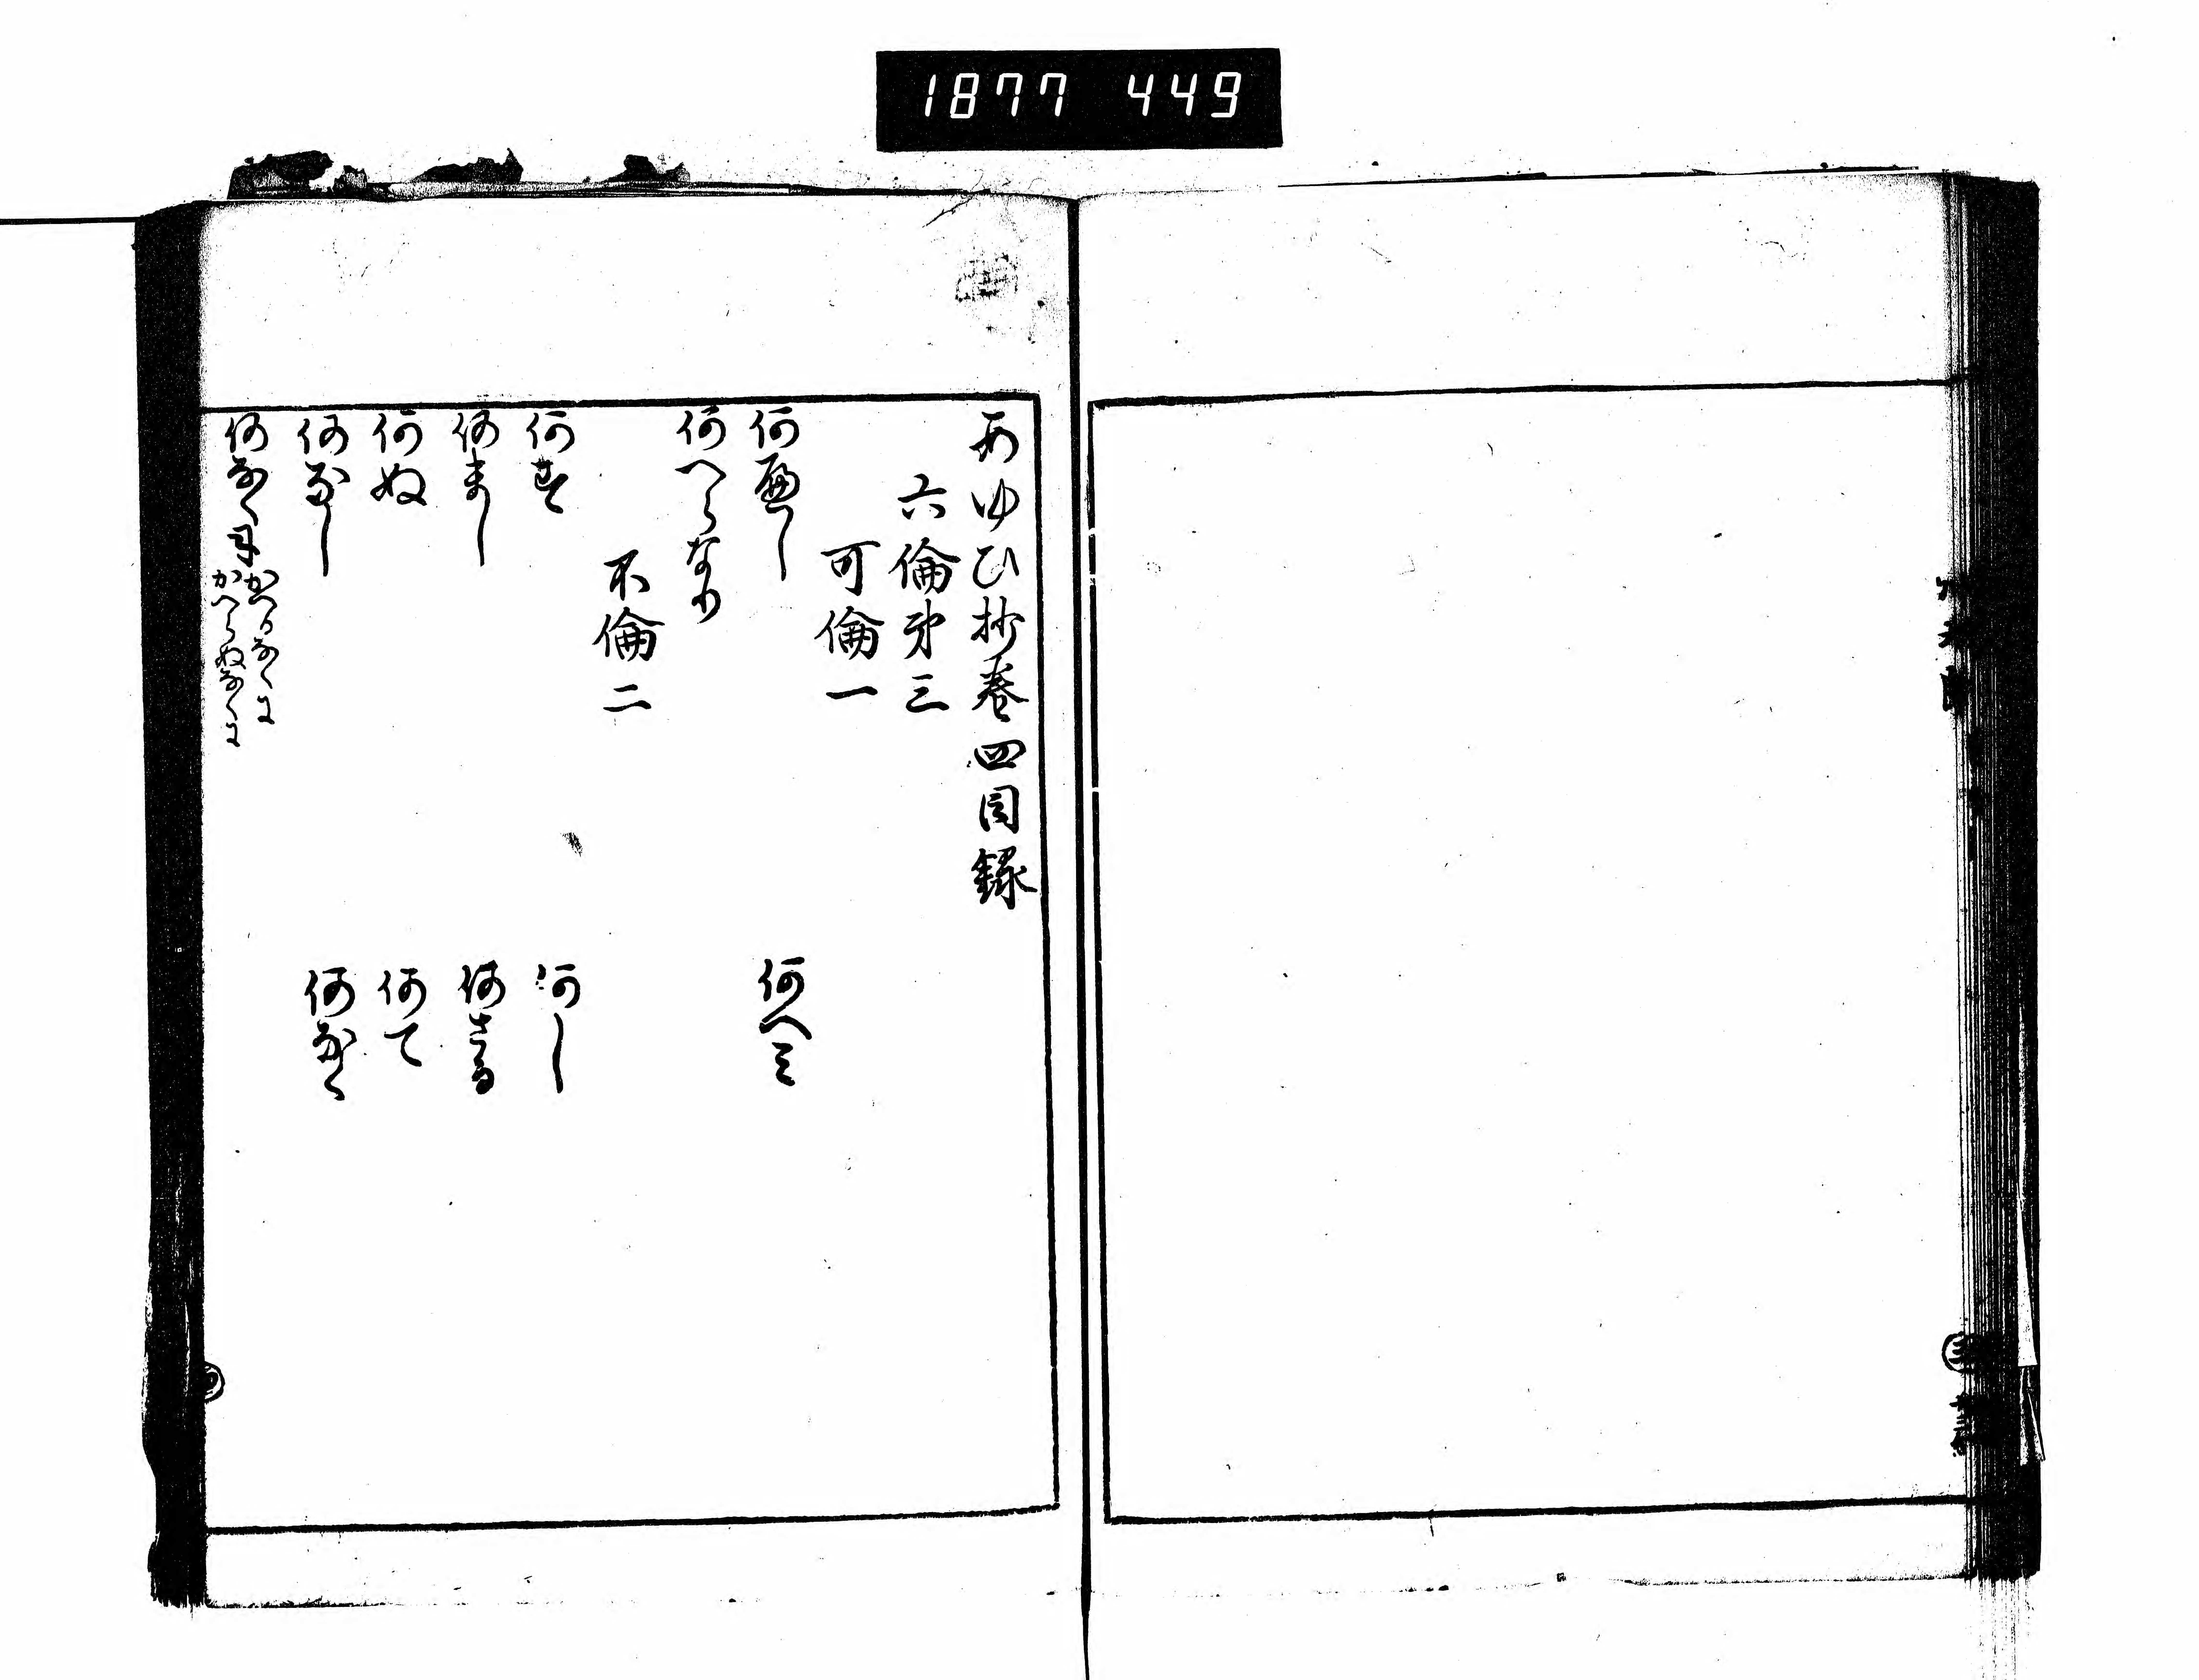 1877 449
あゆひ抄巻四目録
六倫第三
可倫一
何へし
何へみ
何へらなり
不倫二
何す
何し
何まし
何さる
何ぬ
何て
何なし
何なく
何なくに
かへるなくに
かへらぬなくに